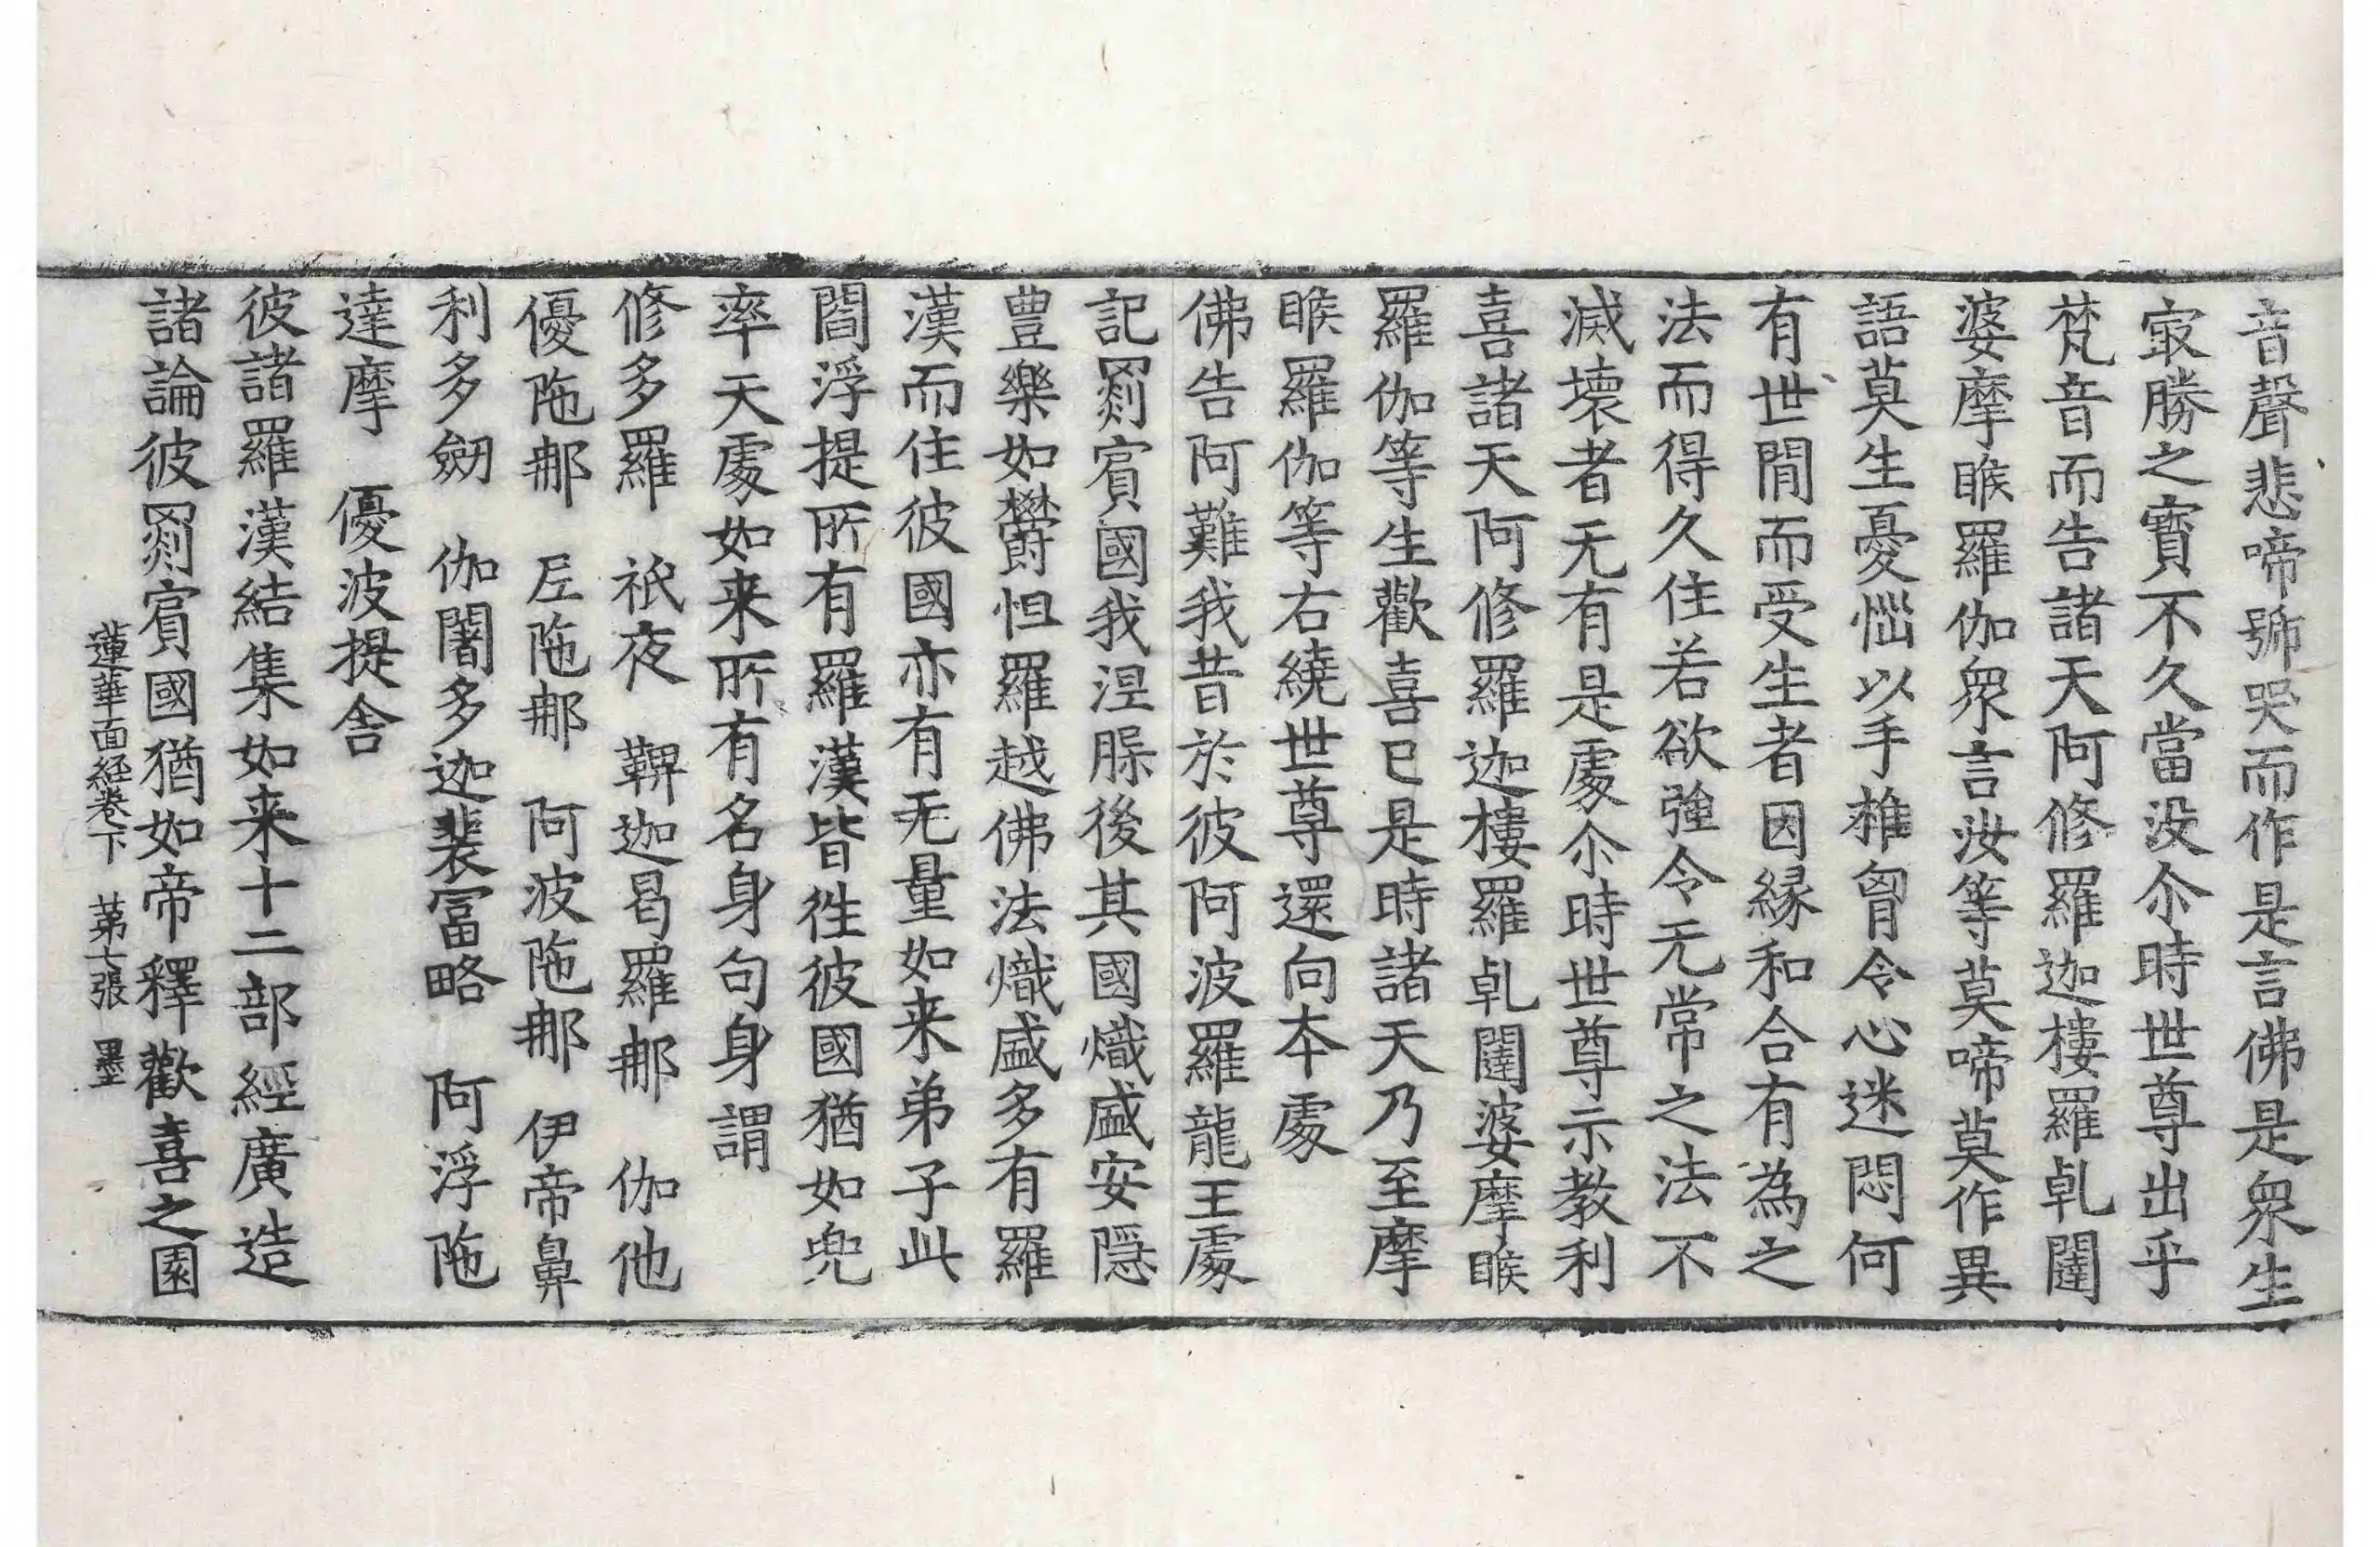 音聲悲啼號哭而作是言佛是衆生
寂勝之寶不久當没尒時世尊出乎
梵音而告諸天阿修羅迦樓羅乹闥
婆摩睺羅伽衆言汝等莫啼莫作異
語莫生憂惱以手椎胷令心迷悶何
有世間而受生者因緣和合有為之
法而得久住若欲強令无常之法不
滅壞者无有是處尒時世尊示教利
喜諸天阿修羅迦樓羅乹闥婆摩睺
羅伽等生歡喜已是時諸天乃至摩
睺羅伽等右繞世尊還向本處
佛告阿難我昔於彼阿波羅龍王處
記罽賓國我涅槃後其國熾盛安隱
豊樂如欝怛羅越佛法熾盛多有羅
漢而住彼國亦有无量如来弟子此
閻浮提所有羅漢皆徃彼國猶如兜
率天處如来所有名身句身謂
修多羅　祇夜　鞞迦曷羅那　伽他
優陁那　尼陁那　阿波陁那　伊帝鼻
利多劒　伽闍多迦裴富略　阿浮陁
達摩　優波提舍
彼諸羅漢結集如来十二部經廣造
諸論彼罽賓國猶如帝釋歡喜之園
蓮華面経卷下　苐七張　墨